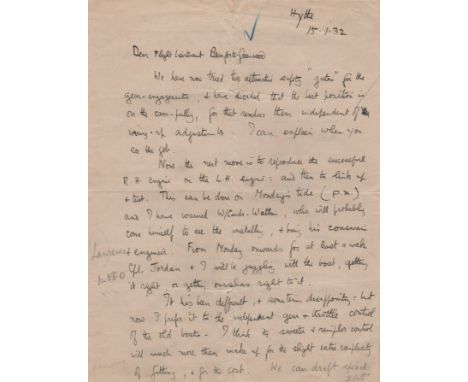 Hythe
15.1.32
Dear Flight Lieutenant Beauforte-Greenwood
We have now tried two alternative safety "gates" for the
gear-engagements, & have decided that the best position is
on the cam-pulley, for that renders them independent of
wiring-up adjustments. I can explain when you
see the job.
Now the next move is to reproduce the successful
R.H. engine on the L.H. engine: and then to link up
& test. This can be done on Monday's tide (p.m.)
and I have warned W/Cmdr. who will probably
come himself to see the installing, & bring his coxswain
& engineer. From Monday onwards for at least a week
Cpl. Jordan & I will be juggling with the boat, getting
it right or getting ourselves right to it.
It has been difficult, & sometimes disappointing: but
now I prefer it to the independent gear & throttle control
of the old boats. I think the sweeter & simpler control
will much more than make up for the slight extra complexity
of fitting, & for the cost. We can draft
Lawrence